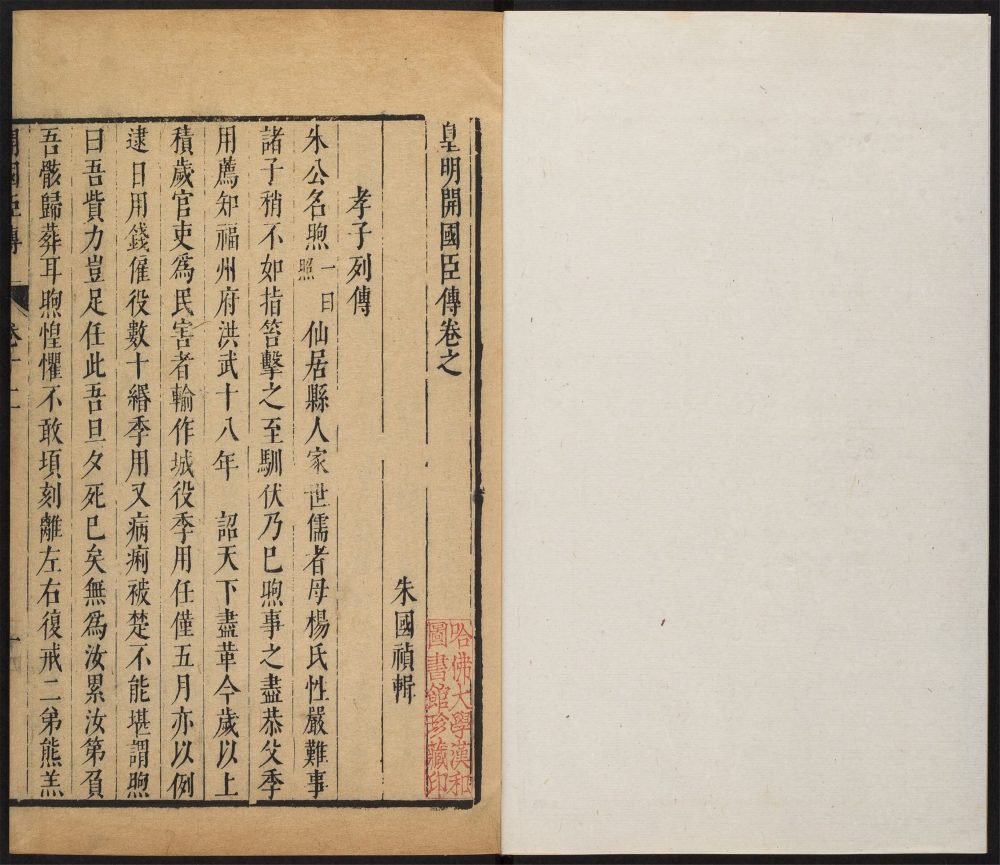 皇明開國臣傳卷之
朱國禎輯
孝子列傳
朱公名煦一曰照仙居縣人家世儒者母楊氏性嚴難事
諸子稍不如指笞擊之至馴伏乃已煦事之盡恭父季
用薦知福州府洪武十八年 詔天下盡革今歲以上
積歲官吏爲民害者輸作城役季用任僅五月亦以例
逮日用錢僱役數十緡季用又病痢被楚不能堪謂煦
曰吾貲力豈足任此吾旦夕死已矣無爲汝累汝第負
吾骸歸葬耳煦惶懼不敢頃刻離左右復戒二弟熊羔
開國臣傳 卷十二 一
哈佛大學漢和
圖書館珍藏印